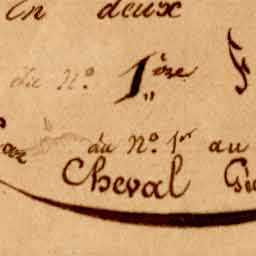 En deux
du N.º 1.ère
du N.º 1.er au
Cheval